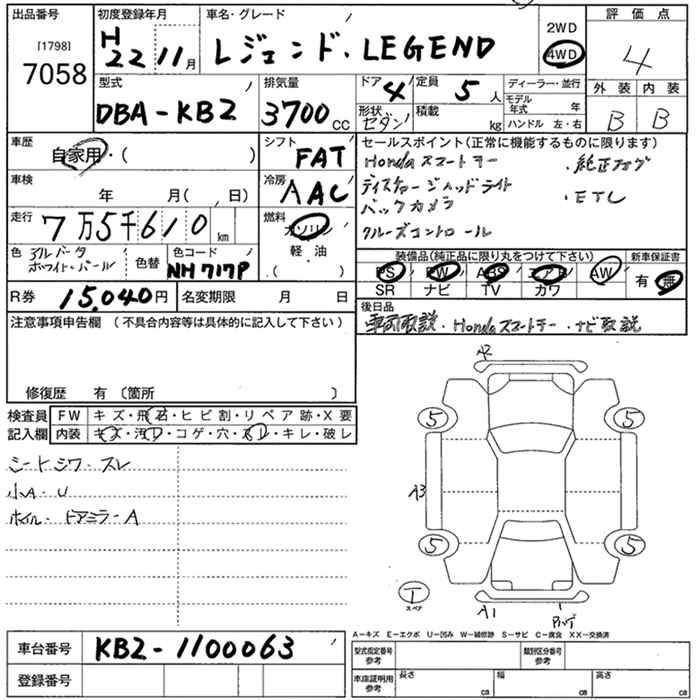 出品番号
[1798]
7058
初度登録年月
H22 11月
車名・グレード
レジェンド. LEGEND
2WD
4WD
評価点
4
型式
DBA-KB2
排気量
3700cc
ドア 4
形状 セダン
定員 5人
積載 kg
ディーラー・並行
モデル年式 年
ハンドル 左・右
外装 内装
B B
車歴
自家用・( )
シフト
FAT
車検
年 月( 、日)
冷房
AAC
走行
7万5千610km
燃料
ガソリン
軽・油
( )
色
アルバータホワイト・パール
色替
色コード
NH717P
R券
15,040円
名変期限 月 日
セールスポイント(正常に機能するものに限ります)
Hondaスマートキー
ディスチャージヘッドライト
・ETC
バックカメラ
クルーズコントロール
装備品(純正品に限り丸をつけて下さい)
新車保証書
PS PW ABS エアB AW
有・無
SR ナビ TV カワ
後日品
車両取説・Hondaスマートキー・ナビ取説
注意事項申告欄(不具合内容等は具体的に記入して下さい)
修復歴 有〔箇所 〕
検査員記入欄
FW キズ・飛石・ヒビ割・リペア跡・X要
内装 キズ・汚れ・コゲ・穴・スレ・キレ・破レ
シートシワ・スレ
小A・U
ホイル・ドアミラーA
A2
5 5
A3
5 5
T
スペア
A1
A-キズ E-エクボ U-凹み W-補修跡 S-サビ C-腐食 XX-交換済
車台番号
KB2-1100063
登録番号
型式指定番号 参考
類別区分番号 参考
車庫証明用 参考
長さ cm
幅 cm
高さ cm